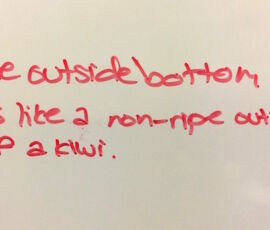 e outside bottom
s like a non-ripe out
P a kiwi.